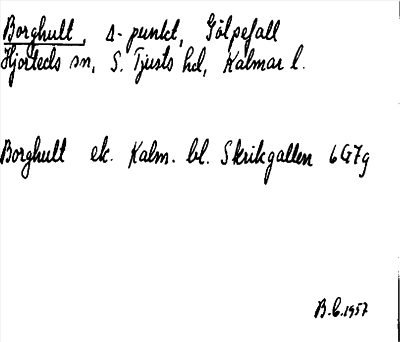 Borghult, Δ-punkt, Gölpefall
Hjorteds sn, S. Tjusts hd, Kalmar l.
Borghult ek. Kalm. bl. Skrikgallen 6G7g
B.C. 1957